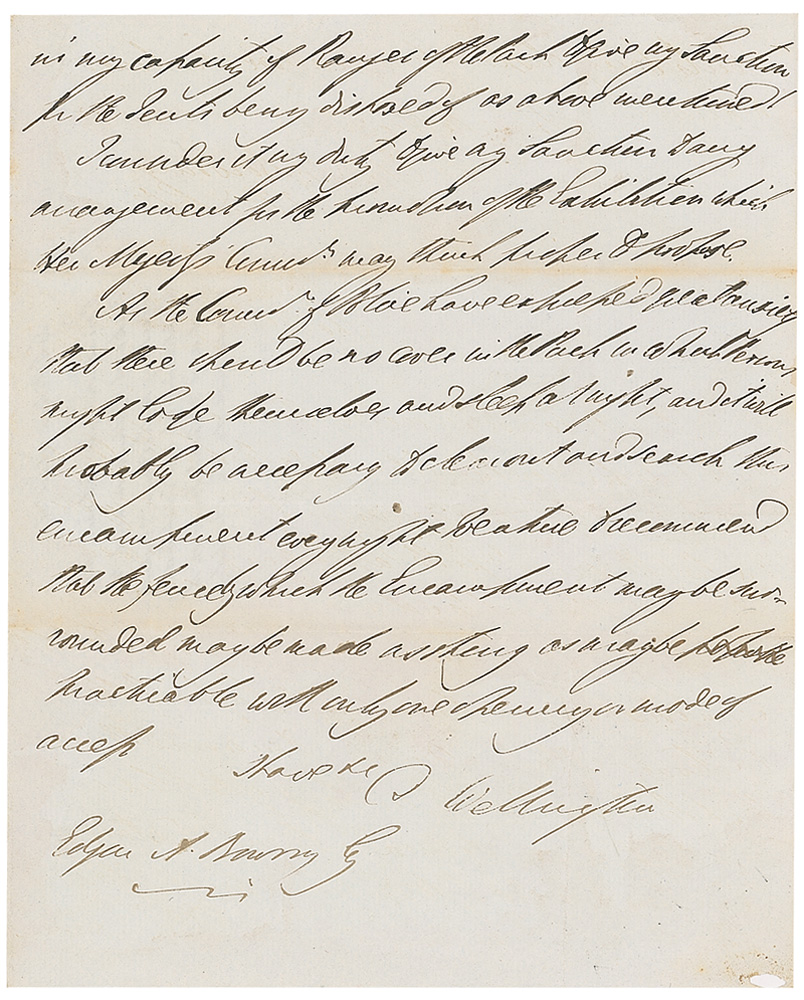 in my capacity of Ranger of the Park to give my Sanction
to the Tents being disposed of as above mentioned
I consider it my duty to give my Sanction to any
arrangement for the promotion of the Exhibition which
Her Majesty's Commrs may think proper to propose.
As the Commrs of Police have expressed great anxiety
that there should be no cover in the Park in which Persons
might lodge themselves and sleep at night, and it will
probably be necessary to clear out and search this
encampment every night I venture to recommend
that the fence by which the Encampment may be sur-
rounded may be made as strong as may be
practicable with only one opening or mode of
access
I have &c
Wellington
Edgar A. Bowring Esq